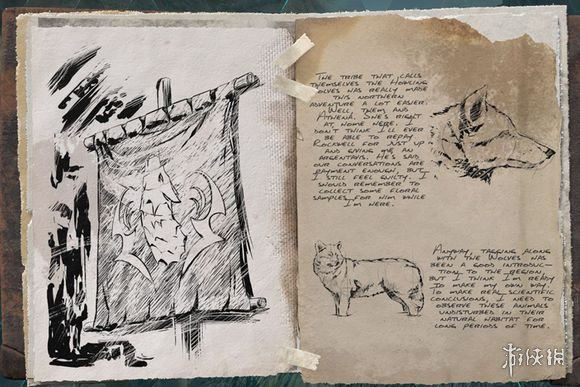 THE TRIBE THAT CALLS
THEMSELVES THE HOWLING
WOLVES HAS REALLY MADE
THIS NORTHERN
ADVENTURE A LOT EASIER.
WELL, THEM AND
ATHENA. SHE'S RIGHT
AT HOME HERE. I
DON'T THINK I'LL EVER
BE ABLE TO REPAY
ROCKWELL FOR JUST UP
AND GIVING ME AN
ARGENTAVIS. HE SAID
OUR CONVERSATIONS ARE
PAYMENT ENOUGH, BUT
I STILL FEEL GUILTY. I
SHOULD REMEMBER TO
COLLECT SOME FLORAL
SAMPLES FOR HIM WHILE
I'M HERE.
ANYWAY, TAGGING ALONG
WITH THE WOLVES HAS
BEEN A GOOD INTRODUC-
TION TO THE REGION,
BUT I THINK I'M READY
TO MAKE MY OWN WAY.
TO MAKE REAL SCIENTIFIC
CONCLUSIONS, I NEED TO
OBSERVE THESE ANIMALS
UNDISTURBED IN THEIR
NATURAL HABITAT FOR
LONG PERIODS OF TIME.
游侠网